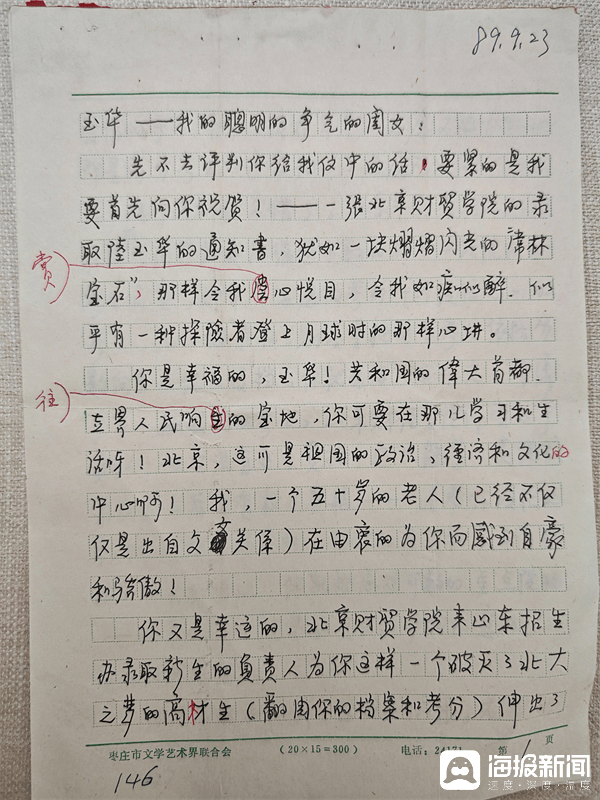 89.9.23
玉华——我的聪明的争气的闺女：
先不去评判你给我仪中的话，要紧的是我
要首先向你祝贺！——一张北京财贸学院的录
取陸玉华的通知書，犹如一块熠熠闪光的津林
赏
宝石”，那样令我赏心悦目，令我如痴如醉．似
乎有一种探險者登上月球时的那样心境。
你是幸福的，玉华！共和国的偉大首都．
往
世界人民响往的宝地，你可要在那儿学习和生
活呀！北京，这可是祖国的政治、经济和文化的
中心啊！我，一个五十岁的老人（已经不仅
仅是出自父女关係）在由衷的为你而感到自豪
和骄傲！
你又是幸运的，北京财贸学院来山东招生
办录取新生的負责人为你这样一个破灭了北大
之梦的高材生（翻阅你的档案和考分）伸出了
枣庄市文学艺术界联合会 （20×15=300） 电话：24171 第1页
146
海报新闻
速度·深度·温度